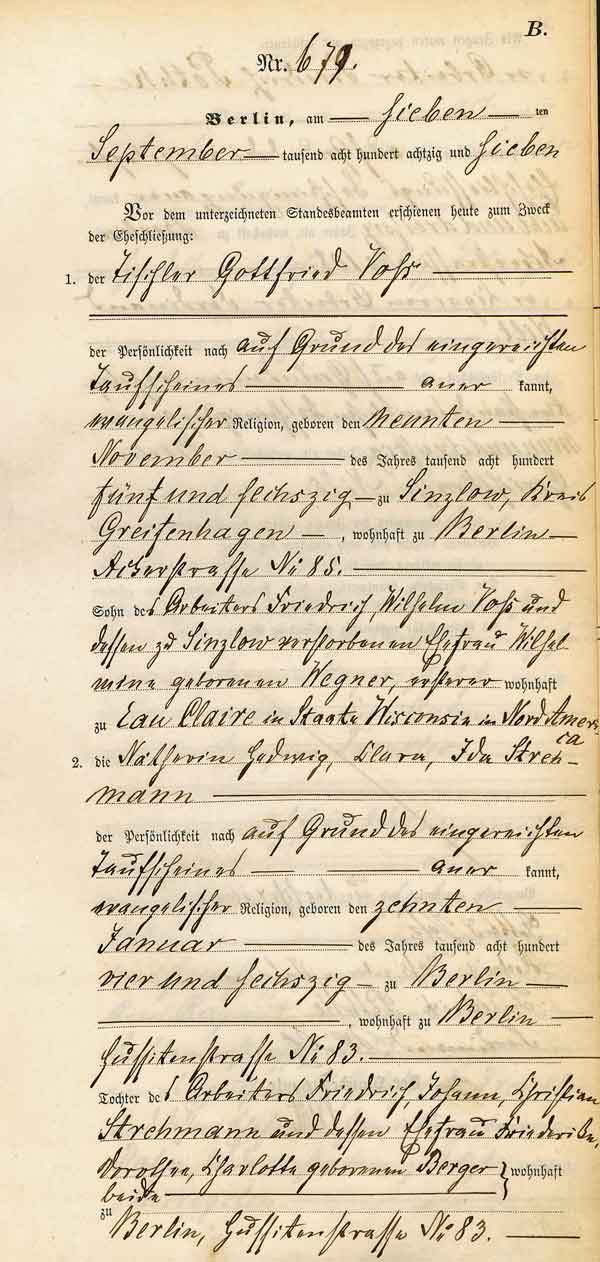 B.
Nr. 679.
Berlin, am sieben ten
September tausend acht hundert achtzig und sieben
Vor dem unterzeichneten Standesbeamten erschienen heute zum Zweck
der Eheschließung:
1. der Tischler Gottfried Voß
der Persönlichkeit nach auf Grund des eingereichten
Taufscheines aner kannt,
evangelischer Religion, geboren den neunten
November des Jahres tausend acht hundert
fünf und sechszig zu Sinzlow, Kreis
Greifenhagen, wohnhaft zu Berlin
Ackerstrasse No 85.
Sohn des Arbeiters Friedrich, Wilhelm Voß und
dessen zu Sinzlow verstorbenen Ehefrau Wilhel-
mine geborenen Wegner, ersterer wohnhaft
zu Eau Claire in Staate Wisconsin in Nord Ameri-
ca
2. die Nätherin Hedwig, Clara, Ida Streh-
mann
der Persönlichkeit nach auf Grund des eingereichten
Taufscheines aner kannt,
evangelischer Religion, geboren den zehnten
Januar des Jahres tausend acht hundert
vier und sechszig zu Berlin
, wohnhaft zu Berlin
Hussitenstrasse No 83.
Tochter des Arbeiters Friedrich, Johann, Christian
Strehmann und dessen Ehefrau Friederike,
Dorothee, Charlotte geborenen Berger } wohnhaft
beide
zu
Berlin, Hussitenstrasse No 83.